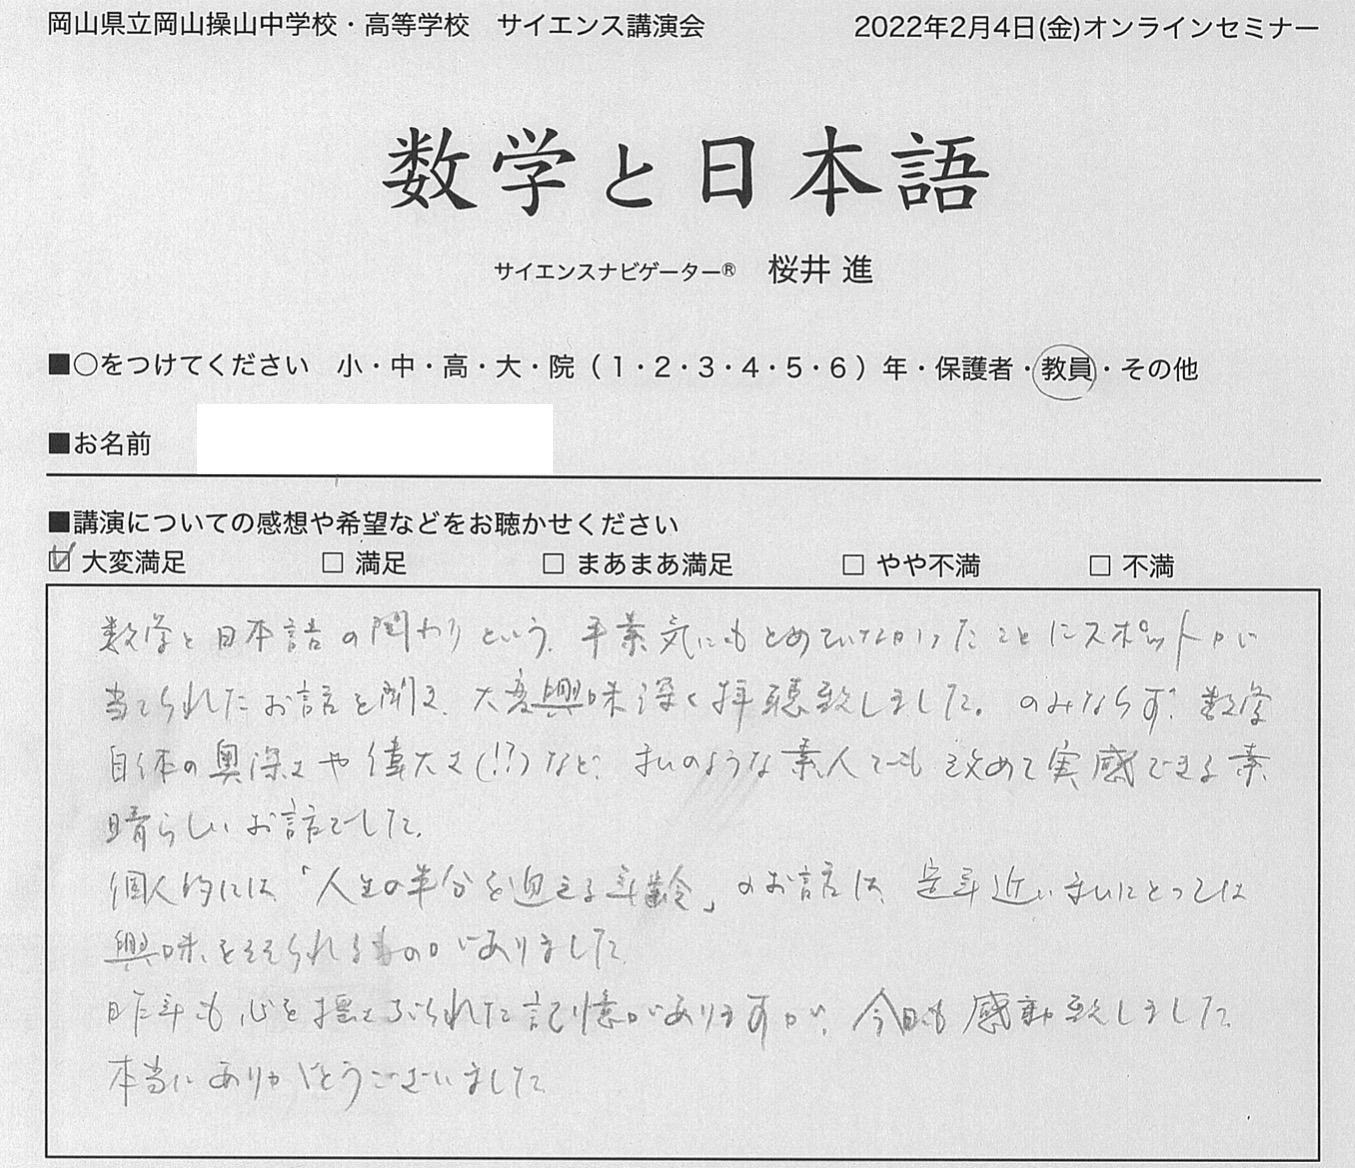 岡山県立岡山操山中学校・高等学校　サイエンス講演会　2022年2月4日(金)オンラインセミナー
数学と日本語
サイエンスナビゲーター®　桜井 進
■○をつけてください　小・中・高・大・院（1・2・3・4・5・6）年・保護者・教員・その他
■お名前
■講演についての感想や希望などをお聴かせください
☑ 大変満足　□ 満足　□ まあまあ満足　□ やや不満　□ 不満
数学と日本語の関わりという、平素気にもとめていなかったことにスポットが
当てられたお話を聞き、大変興味深く拝聴致しました。のみならず、数学
自体の奥深さや偉大さ(!?)など、私のような素人でも改めて実感できる素
晴らしいお話でした。
個人的には「人生の半分を迎える年齢」のお話は、定年近い私にとっては
興味をそそられるものがありました。
昨年も心を揺さぶられた記憶がありますが、今回も感動致しました。
本当にありがとうございました。